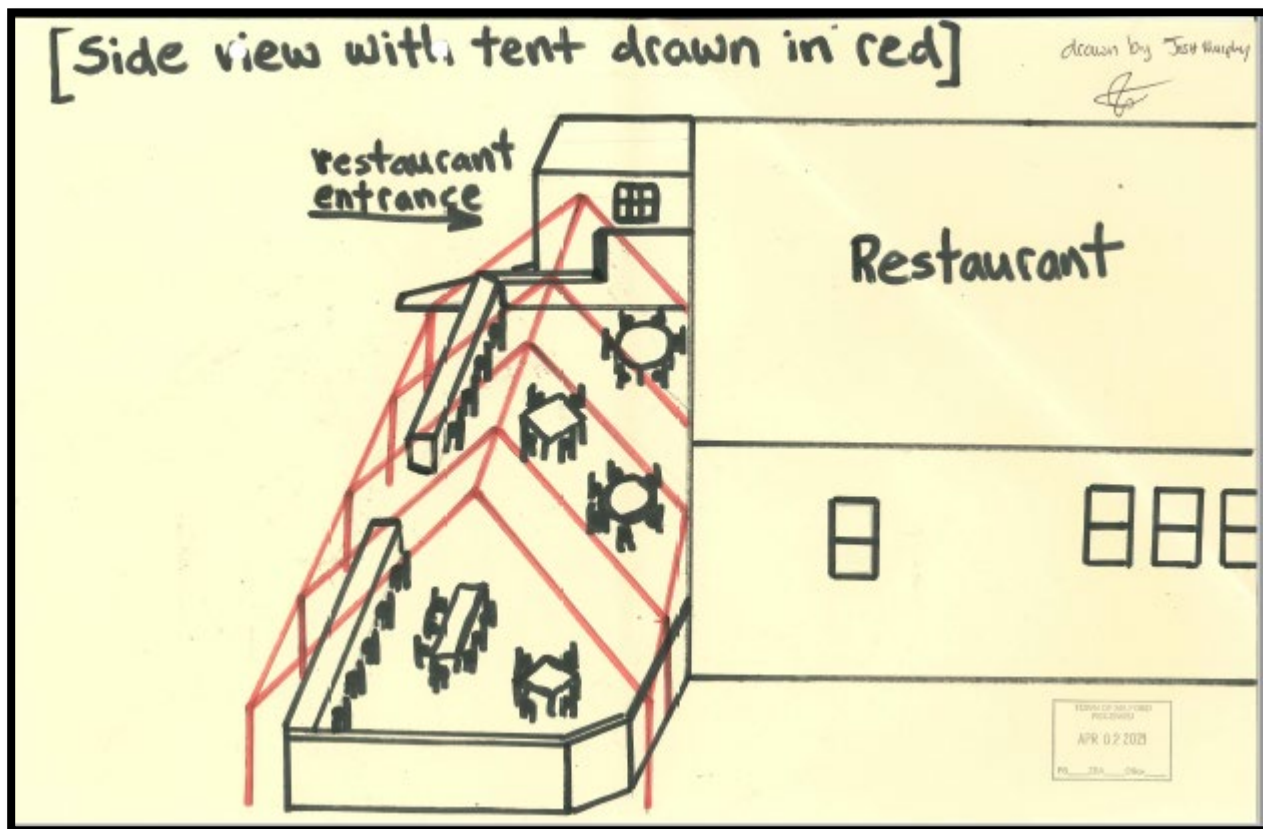 [Side view with tent drawn in red]
drawn by Josh Murphy
restaurant
entrance
Restaurant
TOWN OF MILFORD
RECEIVED
APR 02 2021
PB___ ZBA___ Office___